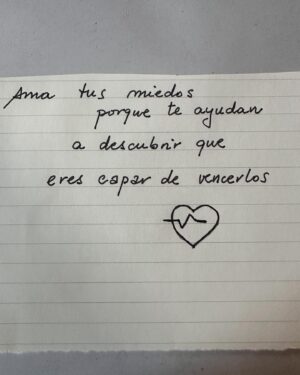 Ama tus miedos
porque te ayudan
a descubrir que
eres capar de vencerlos